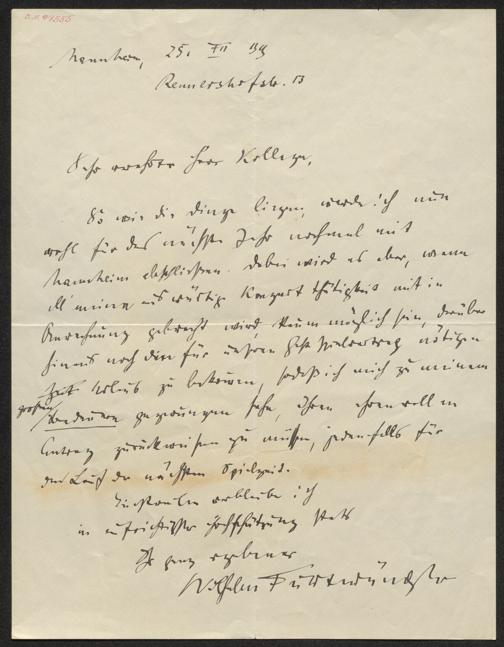 Mannheim, 25. XII
Rennershofstr. 13
Sehr verehrter Herr Kollege,
So wie die Dinge liegen, werde ich nun
wohl für das nächste Jahr nochmal mit
Mannheim abschliessen. Dabei wird es aber, wenn
all meine auswärtige Konzertthätigkeit mit in
Anrechnung gebracht wird, kaum möglich sein, darüber
hinaus noch den für unseren nötigen
Urlaub zu bekommen, sodass ich mich zu meinem
großen Bedauern gezwungen sehe, Ihren ehrenvollen
Antrag zurückweisen zu müssen, jedenfalls für
den Lauf der nächsten Spielzeit.
verbleibe ich
in aufrichtiger Hochschätzung stets
Ihr ganz ergebener
Wilhelm Furtwängler